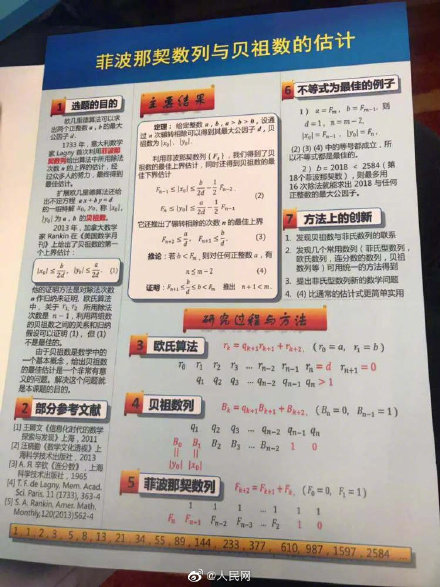 菲波那契数列与贝祖数的估计
1 选题的目的
欧几里德算法可以求
出两个正整数 a, b 的最大
公因子 d.
1733 年，意大利数学
家 Lagny 首次利用菲波那
契数列给出算法中所用除法
次数 n 的上界的估计，经
过众多人的努力，最终得到
最佳估计。
扩展欧几里德算法还给
出不定方程 ax + by = d
的一组特解 x₀, y₀，称 |x₀|,
|y₀| 为 a, b 的贝祖数。
2013 年，加拿大数学
家 Rankin 在《美国数学月
刊》上给出了贝祖数的第一
个上界估计：
|x₀| ≤ b/2d, |y₀| ≤ a/2d. (1)
他的证明方法是对除法次数
n 作归纳来证明. 欧氏算法
中，关于 r₁, r₂ 所用除法
次数是 n − 1，利用两组数
的贝祖数之间的关系和归纳
假设可以证明 (1)，但 (1)
不是最佳的。
由于贝祖数是数学中的
一个基本概念，给出贝祖数
的最佳估计是一个非常有意
义的问题。解决这个问题就
是本课题的目的。
2 部分参考文献
[1] 王卿文《信息化时代的数学
探索与发现》上海，2011
[2] 汪晓勤《数学文化透视》上
海科学技术出版社，2013
[3] А. Я. 辛钦《连分数》，上海
科学技术出版社，1965
[4] T. F. de Lagny, Mem. Acad.
Sci. Paris, 11 (1733), 363-4
[5] S. A. Rankin, Amer. Math.
Monthly,120(2013)562-4
主要结果
定理：给定整数 a, b, a > b > 0，设通
过 n 次辗转相除可以得到其最大公因子 d，贝
祖数为 |x₀|, |y₀|.
利用菲波那契数列 {Fᵢ}，我们得到了贝
祖数的最佳上界估计，同时还得到贝祖数的最
佳下界估计
Fₙ₋₁ ≤ |x₀| ≤ b/2d − 1/2 Fₙ₋₂,
(2)
Fₙ ≤ |y₀| ≤ a/2d − 1/2 Fₙ₋₁.
它还推出了辗转相除的次数 n 的最佳上界
Fₙ₊₂ ≤ a/d, Fₙ₊₁ ≤ b/d. (3)
推论：若 b < Fₘ，则对任何正整数 a，有
n ≤ m − 2 (4)
证明：Fₙ₊₁ ≤ b/d ≤ b < Fₘ 推出 n + 1 < m.
研究过程与方法
3 欧氏算法 rₖ = qₖ₊₁rₖ₊₁ + rₖ₊₂, (r₀ = a, r₁ = b)
r₀ r₁ r₂ r₃ … rₙ₋₂ rₙ₋₁ rₙ = d rₙ₊₁ = 0
q₁ q₂ q₃ … qₙ₋₂ qₙ₋₁ qₙ > 1
4 贝祖数列 Bₖ = qₖ₊₁Bₖ₊₁ + Bₖ₊₂, (Bₙ = 0, Bₙ₋₁ = 1)
q₁ q₂ q₃ … qₙ₋₂ qₙ₋₁ qₙ
B₀ B₁ B₂ B₃ … Bₙ₋₂ 1 0
|| ||
|y₀| |x₀|
5 菲波那契数列 Fₖ₊₂ = Fₖ₊₁ + Fₖ, (F₀ = 0, F₁ = 1)
1 1 1 … 1 1 1
Fₙ Fₙ₋₁ Fₙ₋₂ Fₙ₋₃ … F₂ 1 0
6 不等式为最佳的例子
1) a = Fₘ, b = Fₘ₋₁, 则
d = 1, n = m − 2,
|x₀| = Fₙ₋₁, |y₀| = Fₙ,
(2) (3) (4) 中的等号都成立，所
以不等式都是最佳的。
2) b = 2018 < 2584（第
18个菲波那契数），则最多用
16 次除法就能求出 2018 与任何
正整数的最大公因子。
7 方法上的创新
1. 发现贝祖数与菲氏数列的联系
2. 发现几个常用数列（菲氏型数列，
欧氏数列，连分数的数列，贝祖
数列等）可用统一的方法得到
3. 提出菲氏型数列新的数学问题
4. (4) 比通常的估计式更简单实用
1, 1, 2, 3, 5, 8, 13, 21, 34, 55, 89, 144, 233, 377, 610, 987, 1597, 2584 ...
@人民网